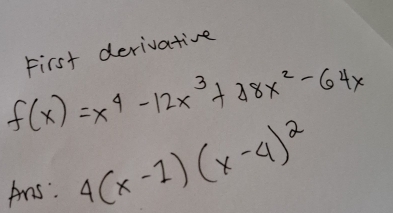 First derivative
f(x) = x⁴ - 12x³ + 48x² - 64x
Ans: 4(x-1)(x-4)²